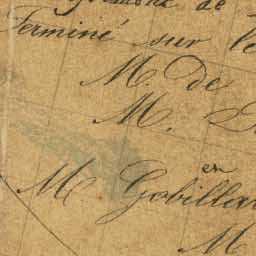 de
Terminé sur le
M. de
M.
en
M Gobilla
M